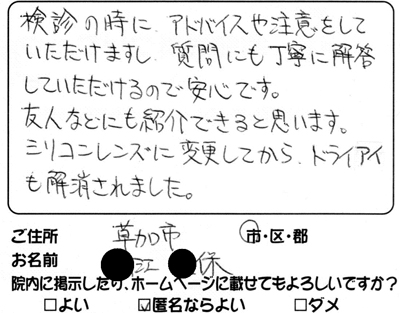 検診の時に、アドバイスや注意をして
いただけますし、質問にも丁寧に解答
していただけるので安心です。
友人などにも紹介できると思います。
ミリコンレンズに変更してから、ドライアイ
も解消されました。
ご住所 草加市 市・区・郡
お名前 江 保
院内に掲示したり、ホームページに載せてもよろしいですか?
□よい ☑匿名ならよい □ダメ